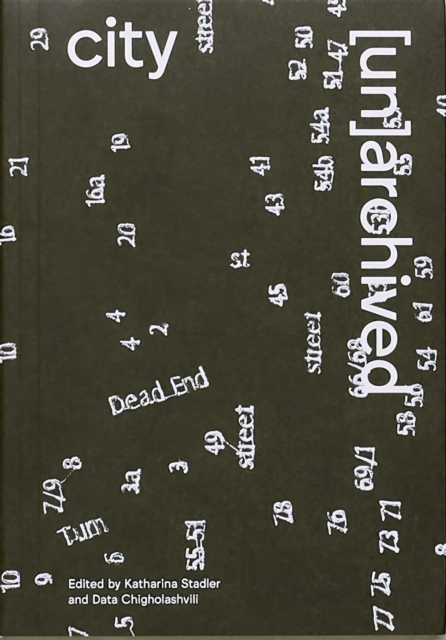 city
[un]archived
street
29
50
52
51-47
54a
54b
53
55
19
21
16a
41
43
16
20
st
45
60
59
61
4
4
2
street
10
54
Dead End
56
58
49
street
8
7/9
3a
3
69
71
78
76
71
73
Turn
55-51
6
10
9
75
8
77
7
5
Edited by Katharina Stadler
and Data Chigholashvili